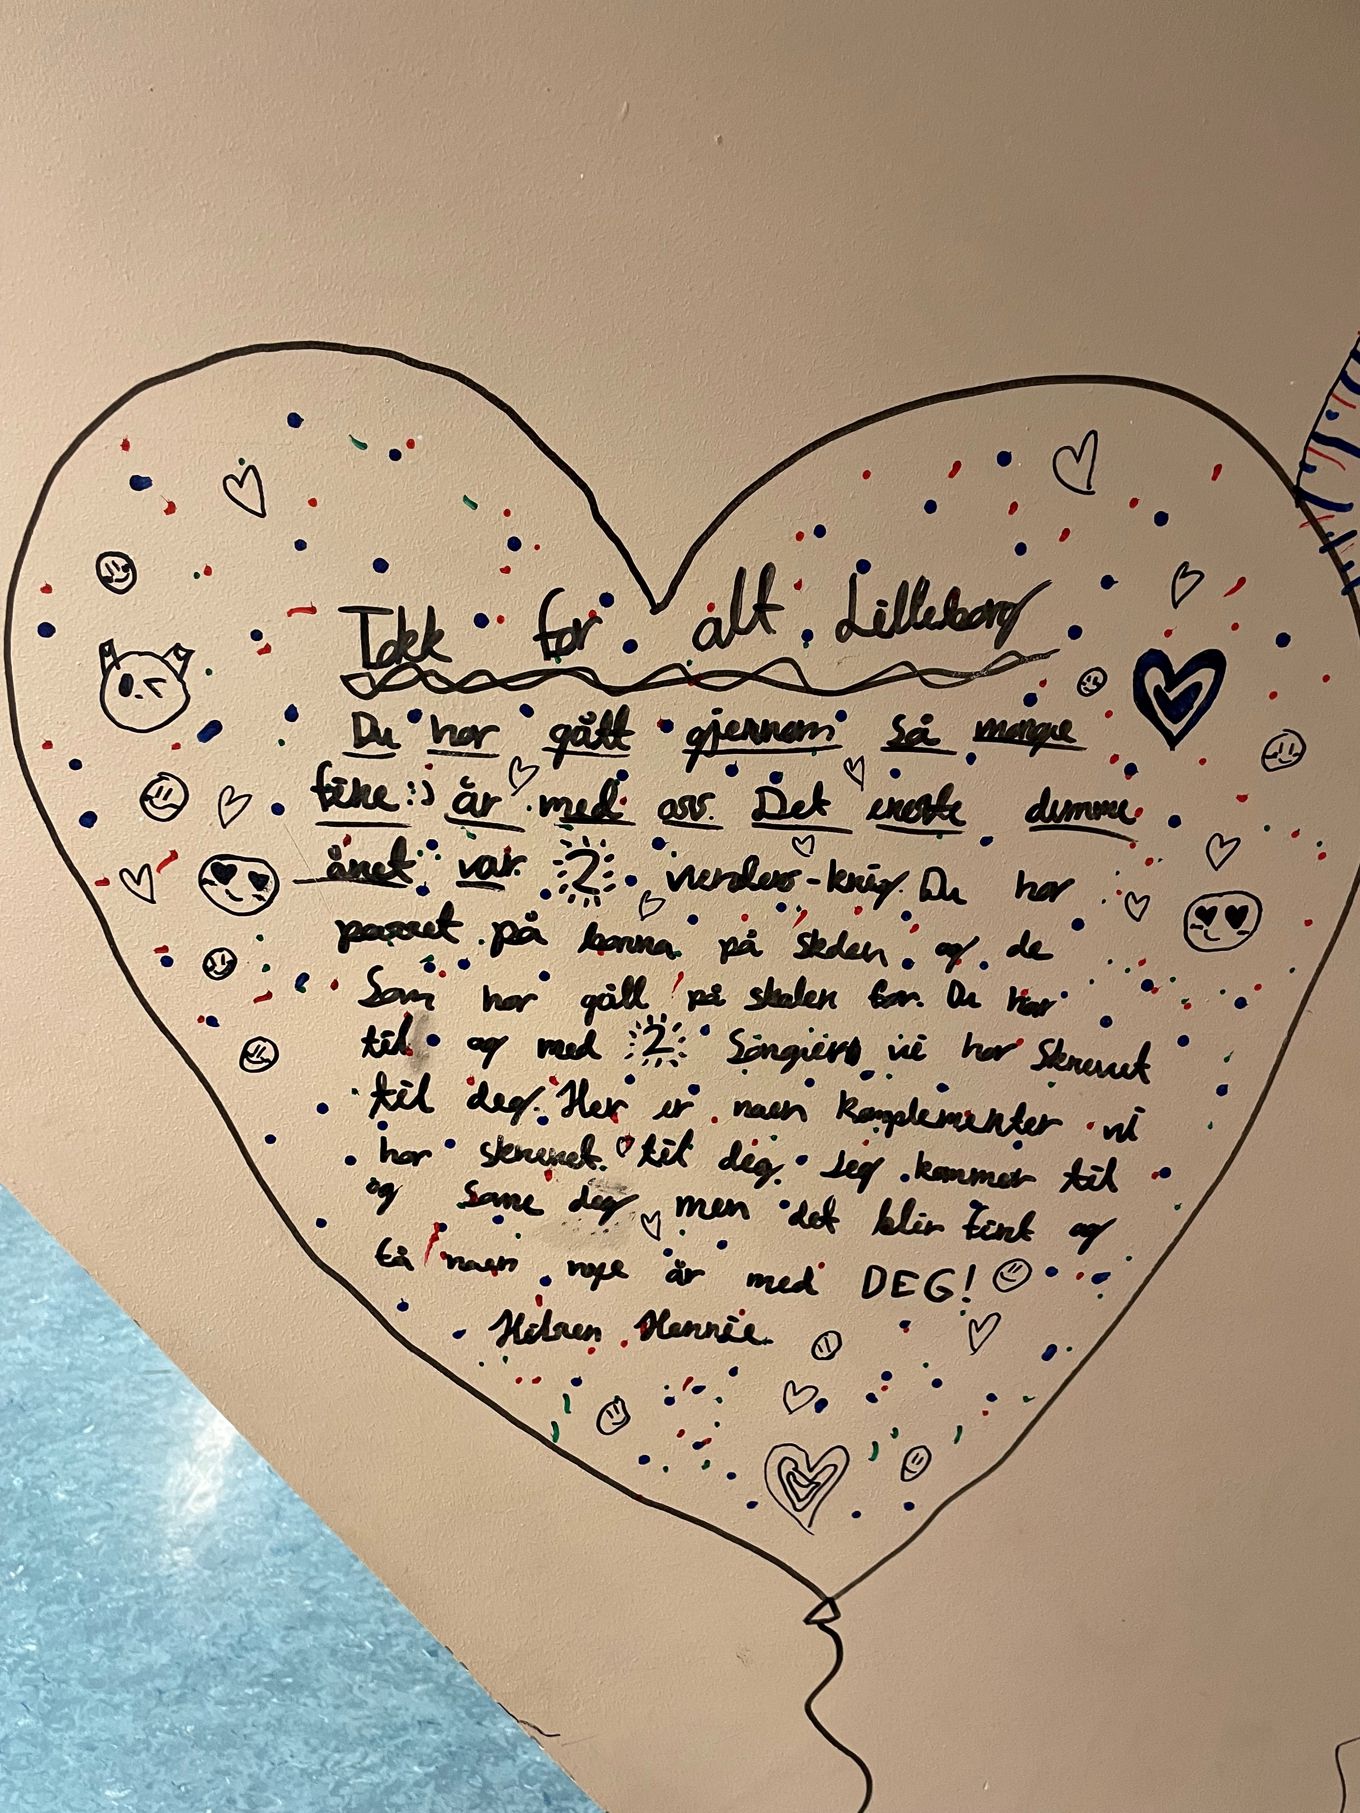 Takk for alt Lilleborg
Du har gått gjernom så mange
fine :) år med oss. Det eneste dumme
året var 2 verdens-krig. Du har
passet på barna på skolen og de
Som har gått på skolen før. Du har
til og med 2 Sangiers vi har Skrevet
til deg. Her er noen Komplementer vi
har skrevet til deg. Jeg kommer til
og savne deg men det blir fint og
få noen nye år med DEG!
Hilsen Hennie